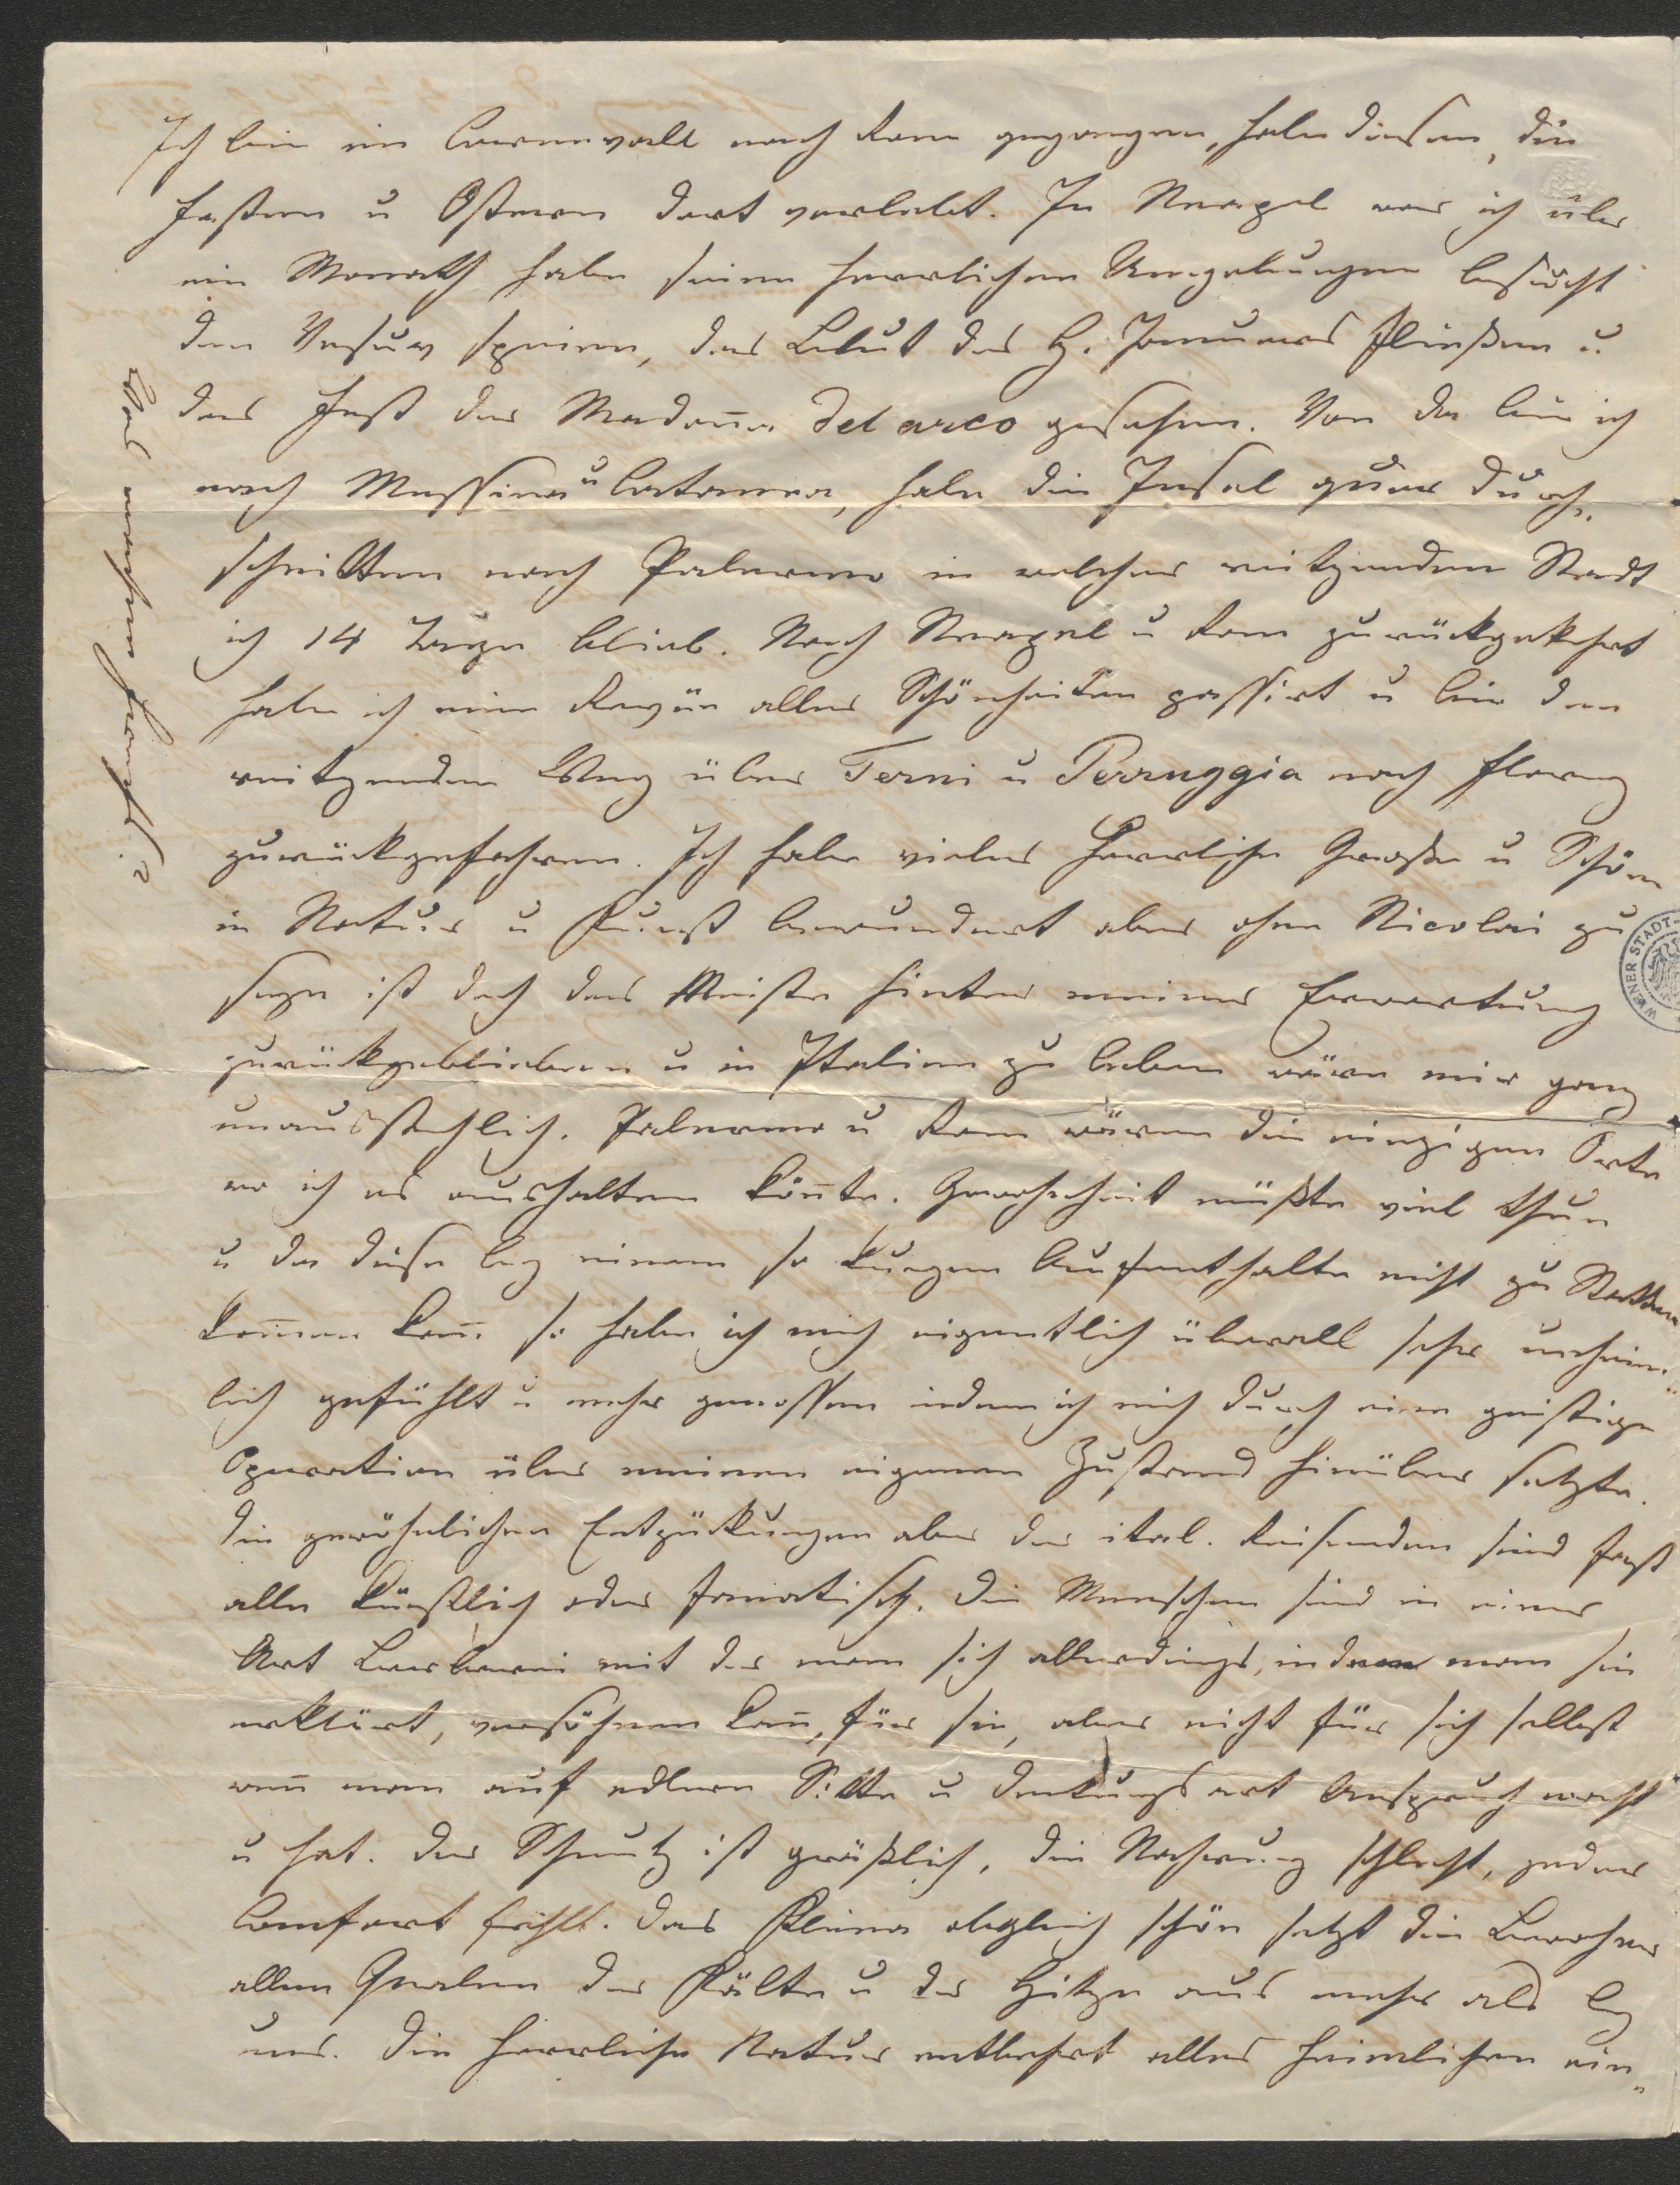 Ich bin im Carnevall nach Rom gegangen, habe diesen, die
Fasten u Ostern dort verlebt. In Neapel war ich über
ein Monath habe seine herrlichen Umgebungen besucht
den Vesuv speien, das Blut des H. Januars fließen u.
das Fest der Madon̄a del arco gesehen. Von da bin ich
nach Messina u Catanea, habe die Insel quer durch„
schnitten nach Palermo in welcher reitzenden Stadt
ich 14 Tage blieb. Nach Neapel u Rom zurückgekehrt
habe ich eine Revüe aller Schönheiten passirt u bin den
reitzenden Weg über Terni u Perruggia nach Florenz
zurückgefahren. Ich habe vieles Herrliche Große u Schöne
in Natur u Kunst bewundert aber ohne Nicolai zu
seyn ist doch das Meiste hinter meiner Erwartung
zurückgeblieben u in Italien zu leben wäre mir ganz
unausstehlich. Palermo u Rom wären die einzigen Orte
wo ich es aushalten kön̄te. Gewohnheit müßte viel thun
u da diese bey einem so kurzen Aufenthalte nicht zu Statten
kom̄en kan̄ so habe ich mich eigentlich überall sehr unheim„
lich gefühlt u mehr genossen indem ich mich durch eine geistige
Operation über meinen eigenen Zustand hinüber setzte.
Die gewöhnlichen Entzückungen aber der ital. Reisenden sind fast
alle künstlich oder fanatisch. Die Menschen sind in einer
Art Barbarei mit der man sich allerdings, indem man sie
erklärt, versöhnen kan̄, für sie, aber nicht für sich selbst
wen̄ man auf edlere Sitte u Denkungsart Anspruch macht
u hat. Der Schmutz ist gräßlich, die Nahrung schlecht, jeder
Comfort fehlt. Das Klima obgleich schön setzt die Bewohner
allen Qualen der Kälte u der Hitze aus mehr als bey
uns. Die herrliche Natur entbehrt alles heimlichen ein„
Das machen
WIENER STADT-